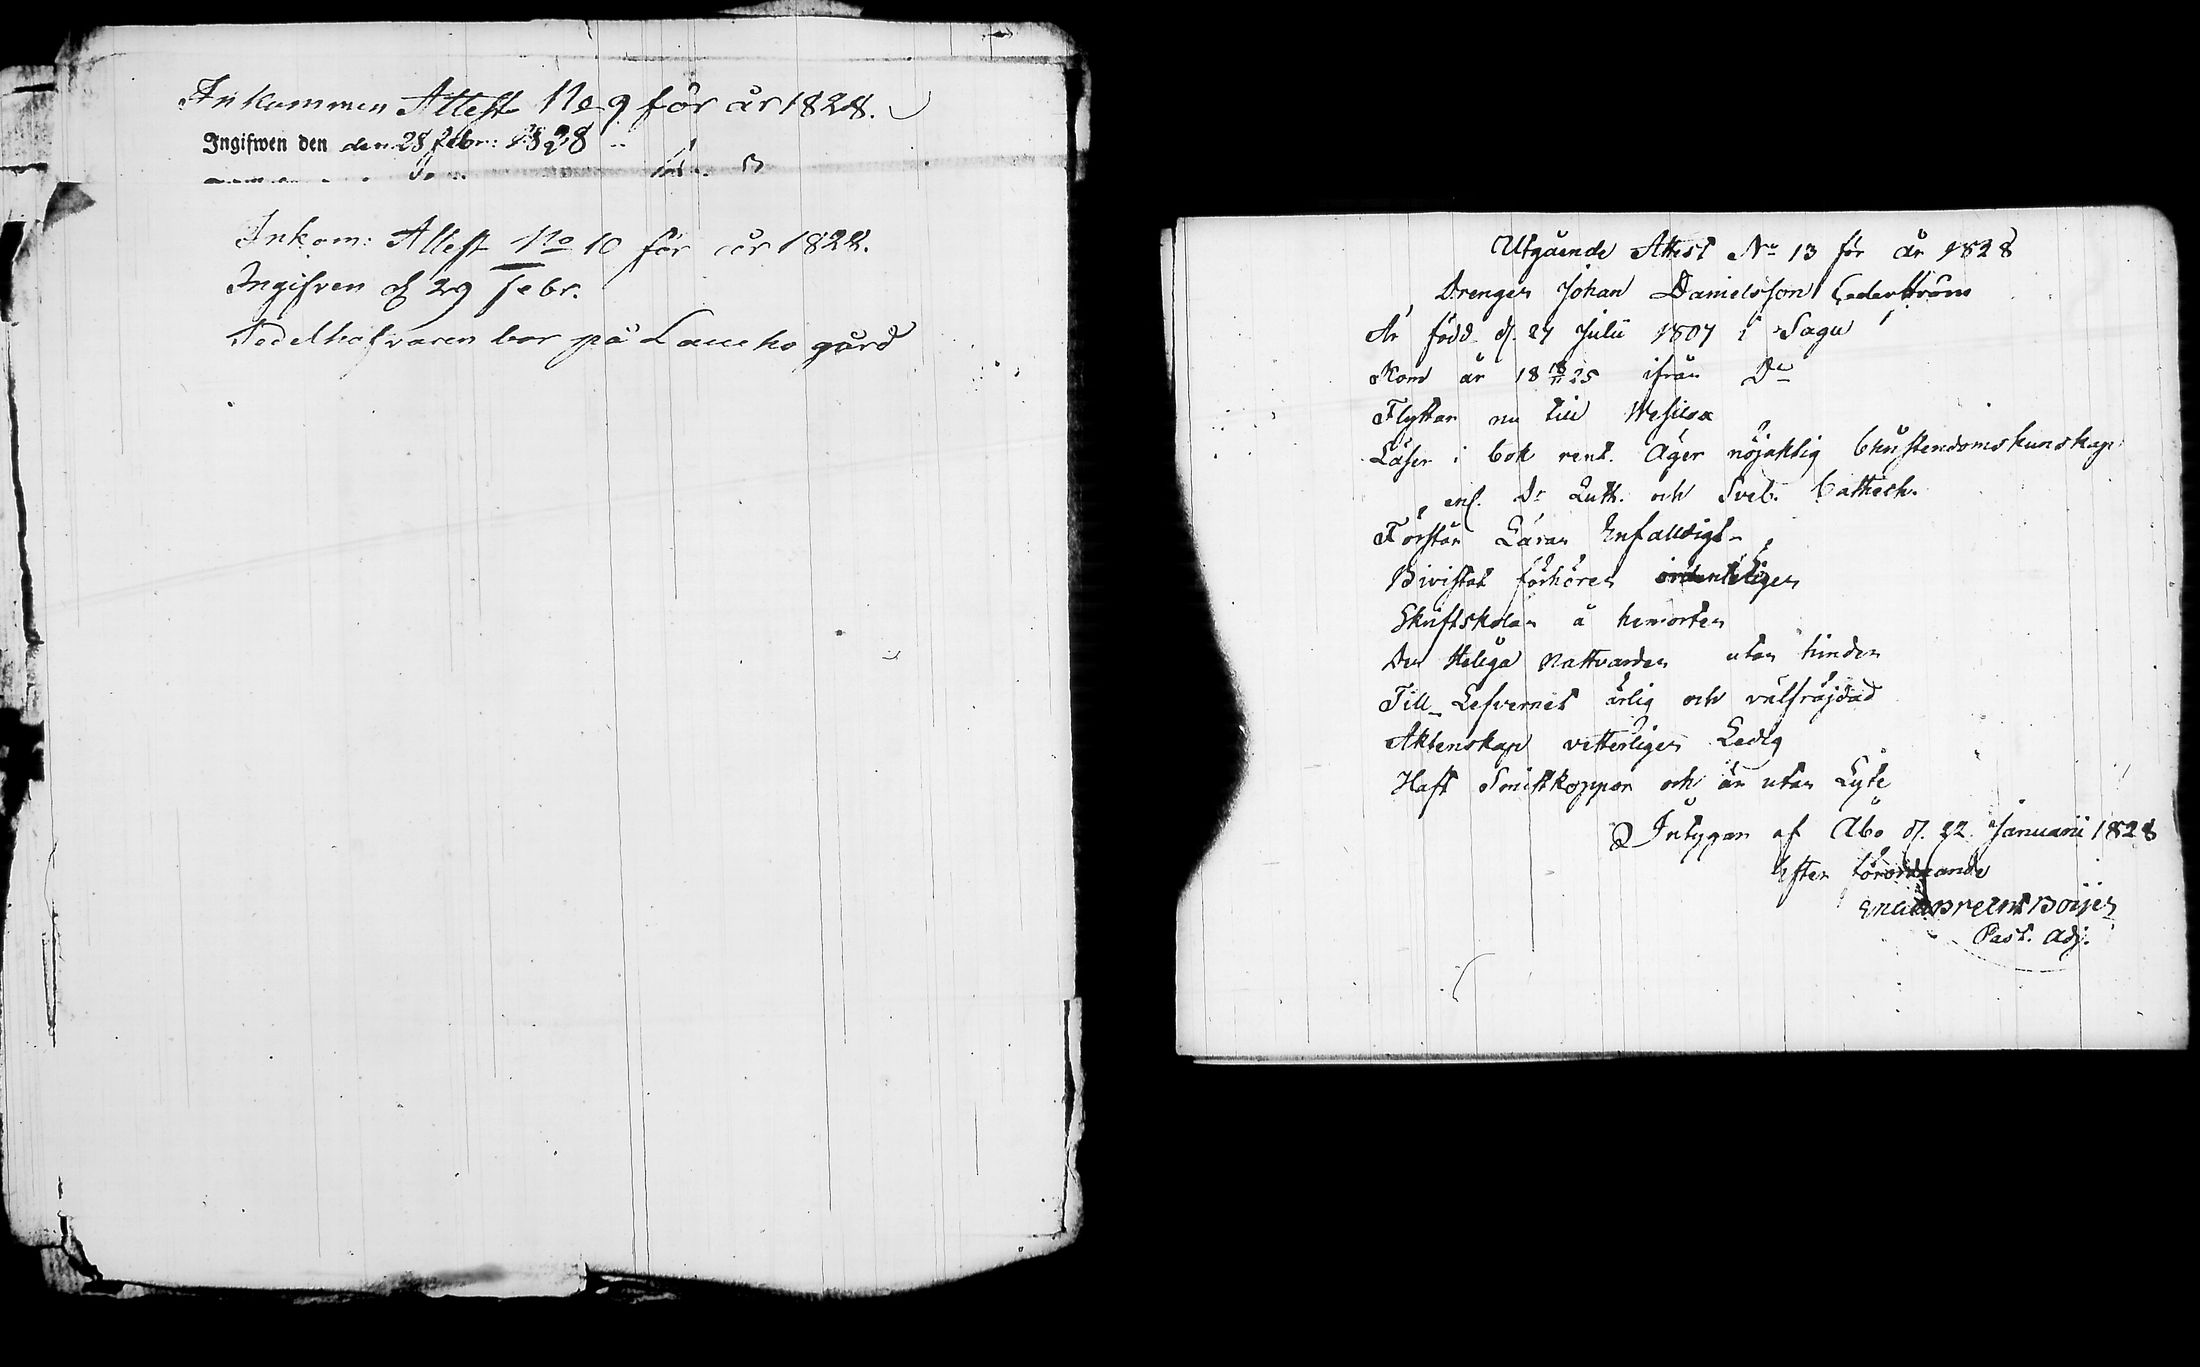 Inkommen Attest No 9 för år 1828.
Ingifwen den den 28 febr: 1828
Inkom: Attest No 10 för år 1828.
Ingifven d 29 Febr.
Sedelhafvaren bor på Laucko gård
Utgående Attest No 13 för år 1828
Drengen Johan Danielsson Cederström
Är född d. 27 Julii 1807 i Sagu
Kom år 18 18/11 25 ifrån Do
Flyttar nu till Wesilax
Läser i bok rent. Äger nöjaktig Christendomskunskap
enl. Dr Luth. och Sveb. Cathech.
Förstår Läran Enfalldigt
Bivistat förhören ordenteligen
Skriftskolan å hemorten
Den Heliga Nattvarden utan hinder
Till Lefvernet ärlig och välfräjdad
Äktenskap vitterligen Ledig
Haft Smittkoppor och är utan Lyte
Intygar af Åbo d. 22 Januarii 1828
Efter förordnande
Boijer
Past. Adj.